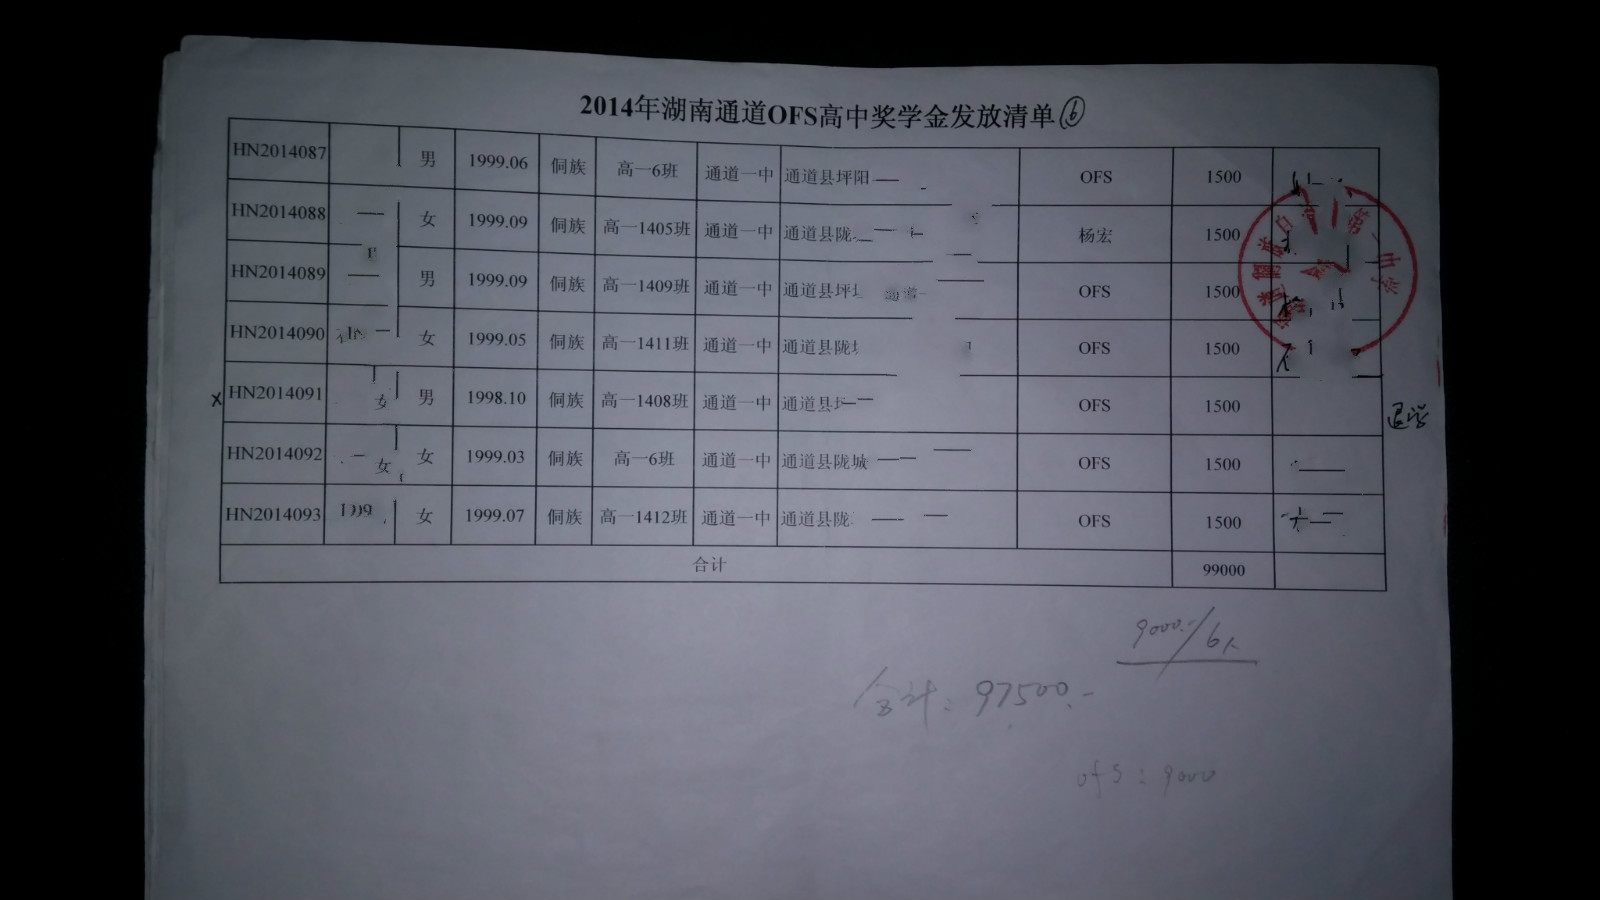 2014年湖南通道OFS高中奖学金发放清单⑥
HN2014087 男 1999.06 侗族 高一6班 通道一中 通道县坪阳 OFS 1500
HN2014088 女 1999.09 侗族 高一1405班 通道一中 通道县陇 杨宏 1500
HN2014089 男 1999.09 侗族 高一1409班 通道一中 通道县坪 OFS 1500
HN2014090 女 1999.05 侗族 高一1411班 通道一中 通道县陇 OFS 1500
x HN2014091 女 男 1998.10 侗族 高一1408班 通道一中 通道县 OFS 1500 退学
HN2014092 女 女 1999.03 侗族 高一6班 通道一中 通道县陇城 OFS 1500
HN2014093 女 1999.07 侗族 高一1412班 通道一中 通道县陇 OFS 1500
合计 99000
9000.-/6人
合计: 97500.-
ofS: 9000